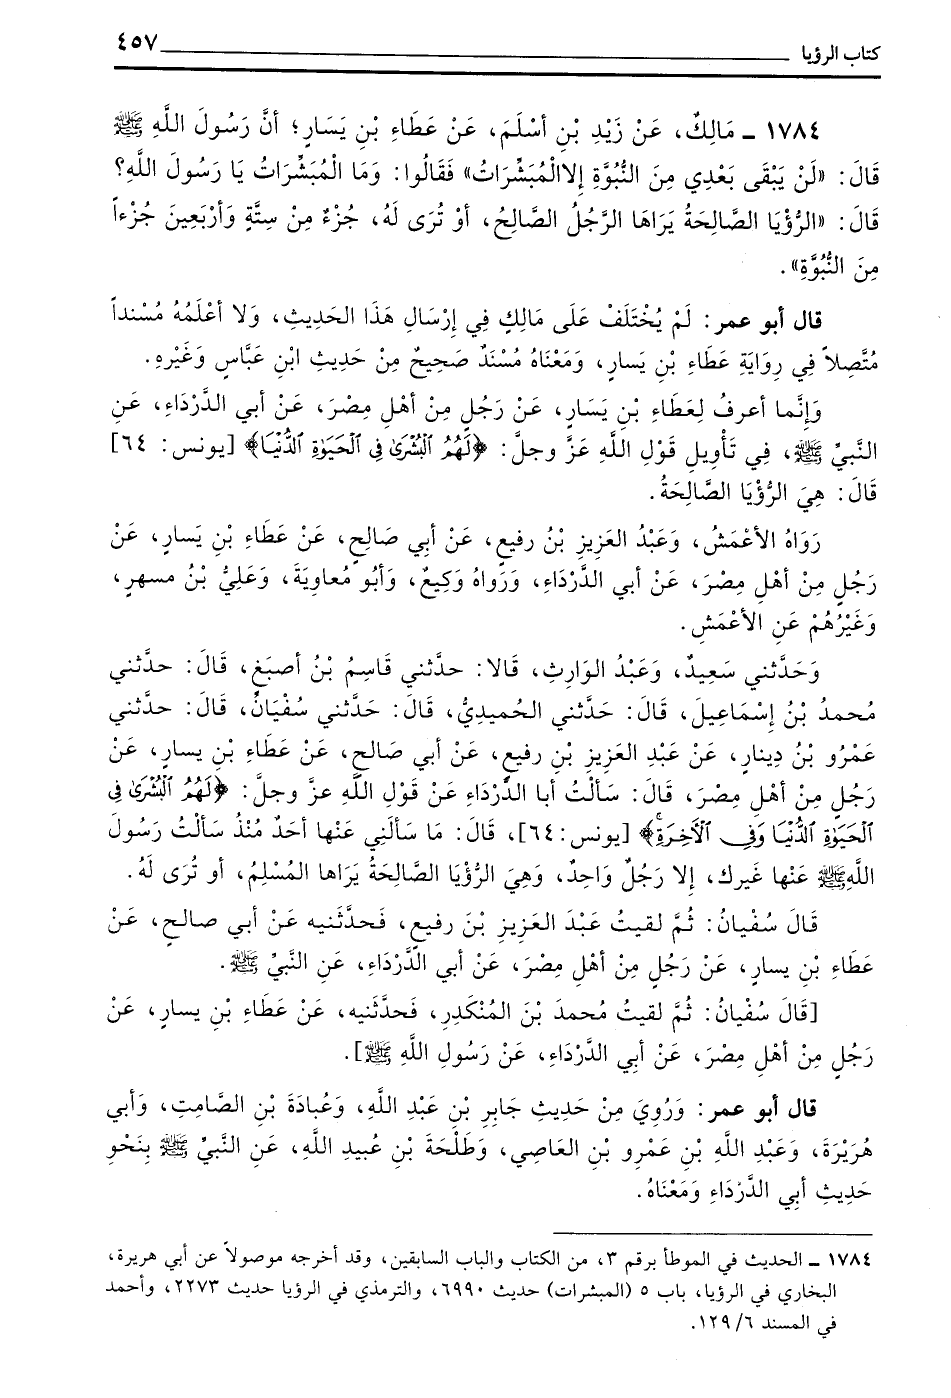 كتاب الرؤيا ٤٥٧
١٧٨٤ ـ مَالِكٌ، عَنْ زَيْدِ بْنِ أَسْلَمَ، عَنْ عَطَاءِ بْنِ يَسَارٍ؛ أنَّ رَسُولَ اللَّهِ ﷺ
قَالَ: «لَنْ يَبْقَى بَعْدِي مِنَ النُّبُوَّةِ إلاالْمُبَشِّرَاتُ» فَقَالُوا: وَمَا الْمُبَشِّرَاتُ يَا رَسُولَ اللَّهِ؟
قَالَ: «الرُّؤْيَا الصَّالِحَةُ يَرَاهَا الرَّجُلُ الصَّالِحُ، أوْ تُرَى لَهُ، جُزْءٌ مِنْ سِتَّةٍ وَأرْبَعِينَ جُزْءاً
مِنَ النُّبُوَّةِ».
قال أبو عمر: لَمْ يُخْتَلَفْ عَلَى مَالِكٍ فِي إِرْسَالِ هَذَا الحَدِيثِ، وَلا أعْلَمُهُ مُسْنداً
مُتَّصِلاً في رِوَايَةِ عَطَاءِ بْنِ يَسارٍ، وَمَعْنَاهُ مُسْنَدٌ صَحِيحٌ مِنْ حَدِيثِ ابْنِ عَبَّاسٍ وَغَيْرِهِ.
وَإنَّما أعرفُ لِعَطَاءِ بْنِ يَسَارٍ، عَنْ رَجُلٍ مِنْ أهْلِ مِصْرَ، عَنْ أبي الدَّرْدَاءِ، عَنِ
النَّبيِّ ﷺ، فِي تَأْوِيلِ قَوْلِ اللهِ عَزَّ وجلَّ: ﴿لَهُمُ ٱلْبُشْرَىٰ فِى ٱلْحَيَوٰةِ ٱلدُّنْيَا﴾ [يونس: ٦٤]
قَالَ: هِيَ الرُّؤْيَا الصَّالِحَةُ.
رَوَاهُ الأعْمَشُ، وَعَبْدُ العَزِيزِ بْنُ رفيعٍ، عَنْ أبي صَالِحٍ، عَنْ عَطَاءِ بْنِ يَسارٍ، عَنْ
رَجُلٍ مِنْ أهْلِ مِصْرَ، عَنْ أبي الدَّرْدَاءِ، وَرَوَاهُ وَكِيعٌ، وَأبُو مُعاوِيَةَ، وَعَلِيُّ بْنُ مسهرٍ،
وَغَيْرُهُمْ عَنِ الأعْمَشِ.
وَحَدَّثني سَعِيدٌ، وَعَبْدُ الوَارِثِ، قَالا: حدَّثني قَاسِمُ بْنُ أصبَغٍ، قَالَ: حدَّثني
مُحمدُ بْنُ إسْمَاعِيلَ، قَالَ: حَدَّثني الحُميدِيُّ، قَالَ: حَدَّثني سُفْيَانُ، قَالَ: حدَّثني
عَمْرُو بْنُ دِينارٍ، عَنْ عَبْدِ العَزِيزِ بْنِ رفيعٍ، عَنْ أبي صَالحٍ، عَنْ عَطَاءِ بْنِ يسارٍ، عَنْ
رَجُلٍ مِنْ أهْلِ مِصْرَ، قَالَ: سَألْتُ أبا الدَّرْدَاءِ عَنْ قَوْلِ اللَّهِ عزَّ وجلَّ: ﴿لَهُمُ ٱلْبُشْرَىٰ فِى
ٱلْحَيَوٰةِ ٱلدُّنْيَا وَفِى ٱلْآخِرَةِ﴾ [يونس:٦٤]، قَالَ: مَا سَألَنِي عَنْها أحَدٌ مُنْذُ سَألْتُ رَسُولَ
اللَّهِﷺ عَنْها غَيرك، إلا رَجُلٌ وَاحِدٌ، وَهِيَ الرُّؤْيَا الصَّالِحَةُ يَرَاها المُسْلِمُ، أو تُرَى لَهُ.
قَالَ سُفْيانُ: ثُمَّ لقيتُ عَبْدَ العَزيزِ بْنَ رفيعٍ، فَحدَّثَنيه عَنْ أبي صالحٍ، عَنْ
عَطَاءِ بْنِ يسارٍ، عَنْ رَجُلٍ مِنْ أهْلِ مِصْرَ، عَنْ أبي الدَّرْدَاءِ، عَنِ النَّبيِّ ﷺ.
[قَالَ سُفْيانُ: ثُمَّ لقيتُ مُحمدَ بْنَ المُنْكَدِرِ، فَحدَّثَنيه، عَنْ عَطَاءِ بْنِ يسارٍ، عَنْ
رَجُلٍ مِنْ أهْلِ مِصْرَ، عَنْ أبي الدَّرْدَاءِ، عَنْ رَسُولِ اللَّهِ ﷺ].
قال أبو عمر: وَرُوِيَ مِنْ حَدِيثِ جَابِرِ بْنِ عَبْدِ اللَّهِ، وَعُبادَةَ بْنِ الصَّامِتِ، وَأبي
هُرَيْرَةَ، وَعَبْدِ اللَّهِ بْنِ عَمْرِو بْنِ العَاصِي، وَطَلْحَةَ بْنِ عُبيدِ اللَّهِ، عَنِ النَّبيِّ ﷺ بِنَحْوِ
حَدِيثِ أبي الدَّرْدَاءِ وَمَعْنَاهُ.
١٧٨٤ ـ الحديث في الموطأ برقم ٣، من الكتاب والباب السابقين، وقد أخرجه موصولاً عن أبي هريرة،
البخاري في الرؤيا، باب ٥ (المبشرات) حديث ٦٩٩٠، والترمذي في الرؤيا حديث ٢٢٧٣، وأحمد
في المسند ٦/ ١٢٩.